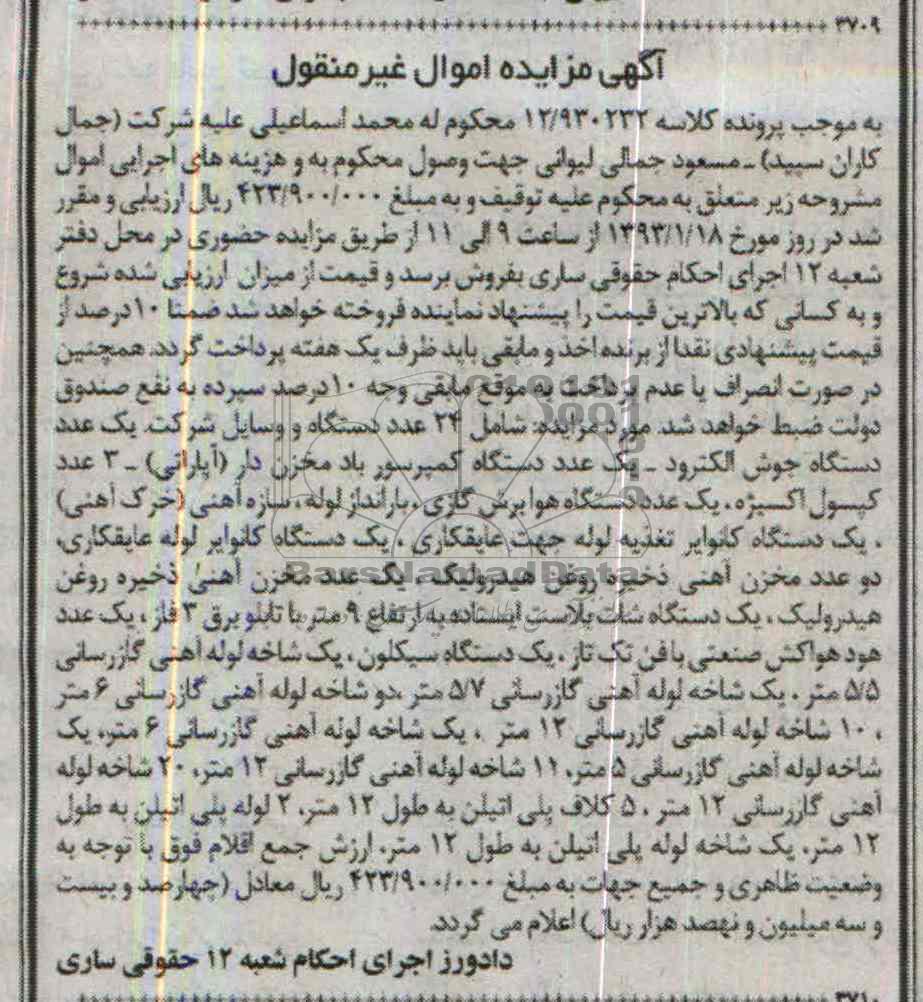 ۳۷۰۹
آگهی مزایده اموال غیر منقول
به موجب پرونده کلاسه ۱۲/۹۳۰۲۳۲ محکوم له محمد اسماعیلی علیه شرکت (جمال
کاران سپید) ـ مسعود جمالی لیوانی جهت وصول محکوم به و هزینه های اجرایی اموال
مشروحه زیر متعلق به محکوم علیه توقیف و به مبلغ ۴۲۳/۹۰۰/۰۰۰ ریال ارزیابی و مقرر
شد در روز مورخ ۱۳۹۳/۱/۱۸ از ساعت ۹ الی ۱۱ از طریق مزایده حضوری در محل دفتر
شعبه ۱۲ اجرای احکام حقوقی ساری بفروش برسد و قیمت از میزان ارزیابی شده شروع
و به کسانی که بالاترین قیمت را پیشنهاد نماینده فروخته خواهد شد ضمنا ۱۰ درصد از
قیمت پیشنهادی نقدا از برنده اخذ و مابقی باید ظرف یک هفته پرداخت گردد. همچنین
در صورت انصراف یا عدم پرداخت به موقع مابقی وجه ۱۰ درصد سپرده به نفع صندوق
دولت ضبط خواهد شد. مورد مزایده: شامل ۲۴ عدد دستگاه و وسایل شرکت. یک عدد
دستگاه جوش الکترود ـ یک عدد دستگاه کمپرسور باد مخزن دار (آپاراتی) ـ ۳ عدد
کپسول اکسیژه ، یک عدد دستگاه هوا برش گازی ، بارانداز لوله ، سازه آهنی (خرک آهنی)
، یک دستگاه کانوایر تغذیه لوله جهت عایقکاری ، یک دستگاه کانوایر لوله عایقکاری،
دو عدد مخزن آهنی ذخیره روغن هیدرولیک ، یک عدد مخزن آهنی ذخیره روغن
هیدرولیک ، یک دستگاه شات پلاست ایستاده به ارتفاع ۹ متر با تابلو برق ۳ فاز ، یک عدد
هود هواکش صنعتی با فن تک تاز ، یک دستگاه سیکلون ، یک شاخه لوله آهنی گازرسانی
۵/۵ متر ، یک شاخه لوله آهنی گازرسانی ۵/۷ متر ،دو شاخه لوله آهنی گازرسانی ۶ متر
، ۱۰ شاخه لوله آهنی گازرسانی ۱۲ متر ، یک شاخه لوله آهنی گازرسانی ۶ متر، یک
شاخه لوله آهنی گازرسانی ۵ متر، ۱۱ شاخه لوله آهنی گازرسانی ۱۲ متر، ۲۰ شاخه لوله
آهنی گازرسانی ۱۲ متر ، ۵ کلاف پلی اتیلن به طول ۱۲ متر، ۲ لوله پلی اتیلن به طول
۱۲ متر، یک شاخه لوله پلی اتیلن به طول ۱۲ متر، ارزش جمع اقلام فوق با توجه به
وضعیت ظاهری و جمیع جهات به مبلغ ۴۲۳/۹۰۰/۰۰۰ ریال معادل (چهارصد و بیست
و سه میلیون و نهصد هزار ریال) اعلام می گردد.
دادورز اجرای احکام شعبه ۱۲ حقوقی ساری
ParsNamadData